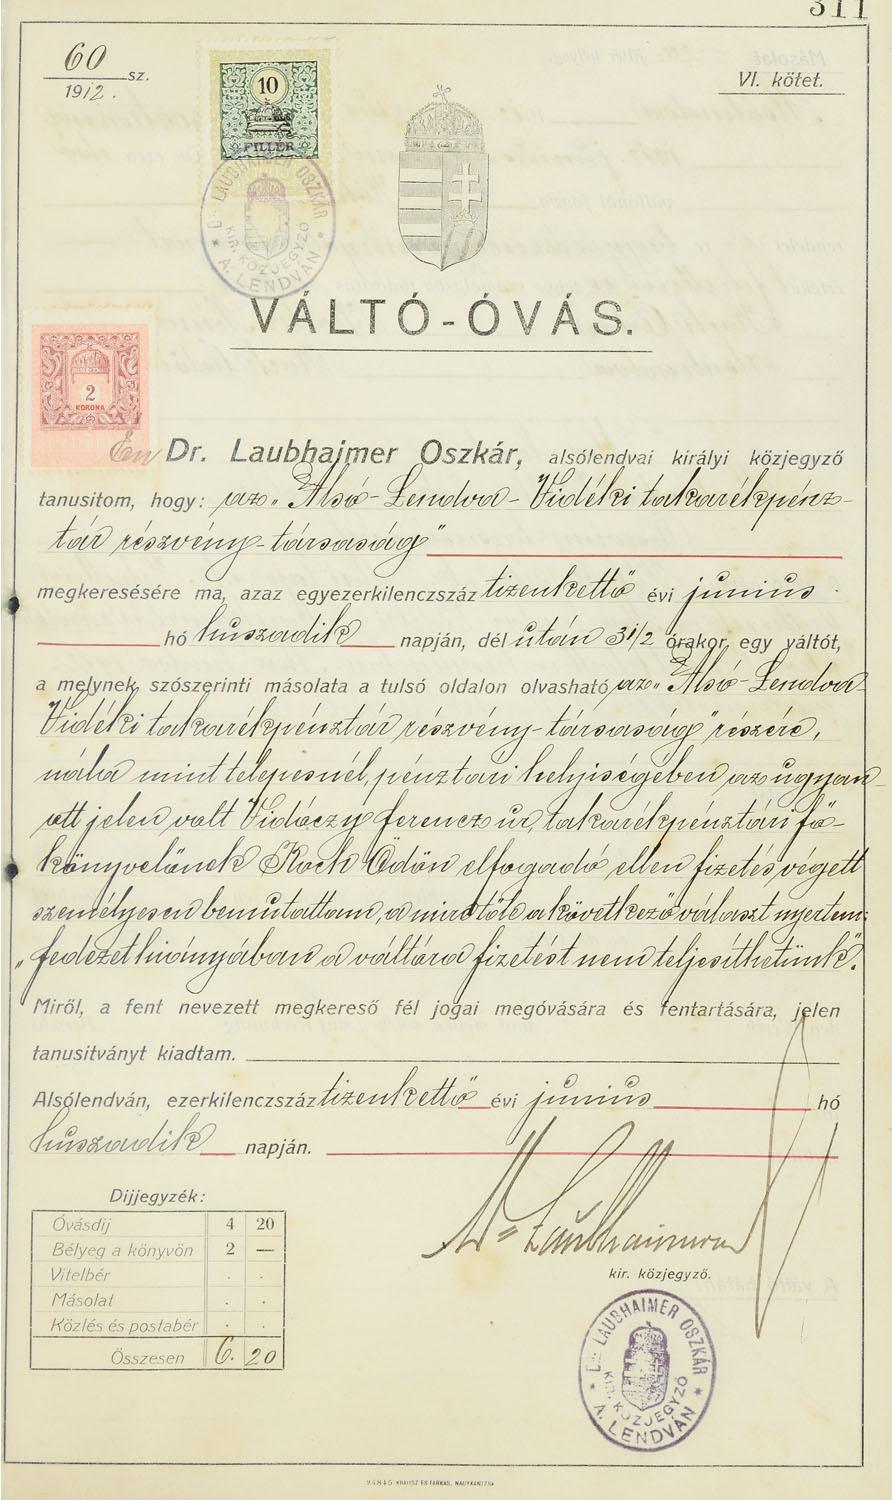 311
60 sz.
1912.
VI. kötet.
10
FILLÉR
Dr. LAUBHAIMER OSZKÁR
KIR. KÖZJEGYZŐ
A. LENDVÁN
VÁLTÓ-ÓVÁS.
2
KORONA
Én Dr. Laubhaimer Oszkár, alsólendvai királyi közjegyző
tanusitom, hogy: az „Alsó-Lendva-Vidéki takarékpénz-
tár részvény-társaság"
megkeresésére ma, azaz egyezerkilenczszáz tizenkettő évi június
hó huszadik napján, dél után 3 1/2 órakor egy váltót,
a melynek szószerinti másolata a tulsó oldalon olvasható, az „Alsó-Lendva-
Vidéki takarékpénztár részvény-társaság" részére,
nála mint telepesnél, pénztári helyiségében az ugyan-
ott jelen volt Vidóczy ferencz ur, takarékpénztári fő-
könyvelőnek Koch Ödön elfogadó ellen fizetés végett
személyesen bemutattam, a mire tőle a következő választ nyertem:
„fedezet hiányában a váltóra fizetést nem teljesíthetünk".
Miről, a fent nevezett megkereső fél jogai megóvására és fentartására, jelen
tanusitványt kiadtam.
Alsólendván, ezerkilenczszáz tizenkettő évi június hó
huszadik napján.
Dijjegyzék:
Óvásdij 4 20
Bélyeg a könyvön 2 —
Vitelbér . .
Másolat . .
Közlés és postabér . .
Összesen 6. 20
Dr Laubhaimer
kir. közjegyző.
Dr. LAUBHAIMER OSZKÁR
KIR. KÖZJEGYZŐ
A. LENDVÁN
24845 KRAUSZ ÉS FARKAS, NAGYKANIZSA